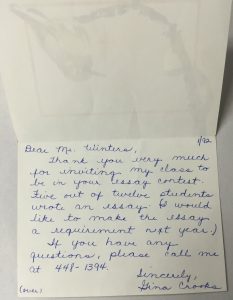 1/92
Dear Ms. Winters,
Thank you very much
for inviting my class to
be in your essay contest.
Five out of twelve students
wrote an essay (I would
like to make the essay
a requirement next year.)
If you have any
questions, please call me
at 448-1394.
Sincerely,
(over) Gina Crooks